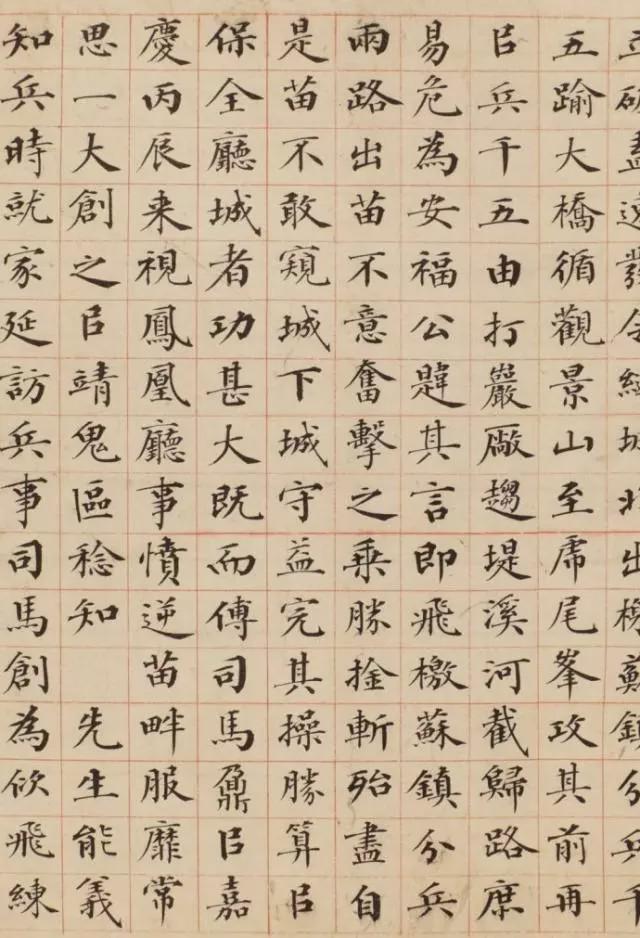 盡發令出鎮分兵千
五踰大橋循觀景山至虎尾峯攻其前再
㠯兵千五由打巖厰趨堤溪河截歸路庶
易危為安福公韙其言即飛檄蘇鎮分兵
兩路出苗不意奮擊之乘勝捦斬殆盡自
是苗不敢窺城下城守益完其操勝算㠯
保全廳城者功甚大既而傅司馬鼐㠯嘉
慶丙辰来視鳳凰廳事憤逆苗畔服靡常
思一大創之㠯靖鬼區稔知 先生能義
知兵時就家延訪兵事司馬創為佽飛練